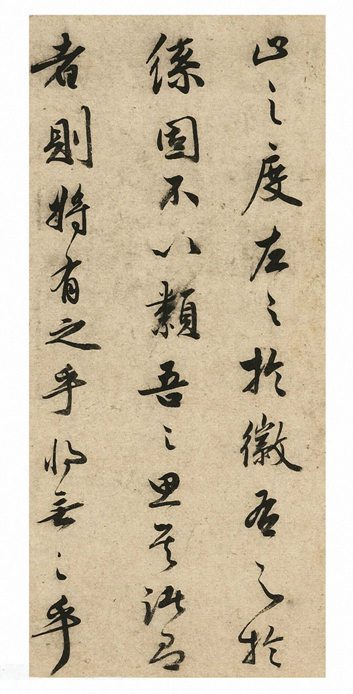 之度左之於徽右之於
固不以類吾之思其
者則將有之乎將無之乎